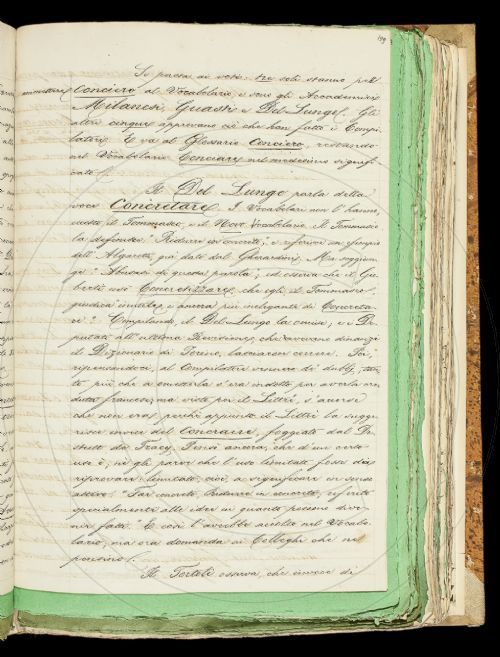 199
Si passa ai voti: tre soli stanno pel
Conciero al Vocabolario, e sono gli Accademici
Milanesi, Guasti e Del-Lungo. Gli
altri cinque approvano ciò che han fatto i Compi-
latori. E va al Glossario Conciero, restando
nel Vocabolario Conciare nel medesimo signifi-
cato.
Il Del Lungo parla della
voce Concretare. I Vocabolari non l'hanno,
eccetto il Tommaseo, e il Novo Vocabolario. Il Tommaseo
la definisce: "Ridurre in concreto", e riferisce un esempio
dell'Algarotti, già dato dal Gherardini. Ma soggiun-
ge: "Abusasi di questa parola"; ed osserva che il Gio-
berti usò Concretizzare, che egli il Tommaseo
giudica inutile, e ancora più inelegante di Concreta-
re." Compilando, il Del-Lungo la omise, e i De-
putati all'ultima Revisione, che avevano dinanzi
il Dizionario di Torino, lasciaron correre. Poi,
ripensandoci, al Compilatore vennero dei dubbj, tan-
to più che a ometterla s'era indotto per averla cre-
duta francese; ma visto poi il Littré, s'accorse
che non era, perchè appunto il Littré la sugge-
risce invece del Concraire, foggiato dal De-
stutt de Tracy. Pensò ancora, che d'un certo
uso è; nè gli parve che l'uso limitato fosse da
riprovare: limitato, cioè, a significare in senso
attivo: "Far concreto, Ridurre in concreto, riferito
specialmente alle idee in quanto possono dive-
nir fatti." E così l'avrebbe accolta nel Vocabo-
lario; ma ora domanda ai Colleghi che ne
pensino.
Il Tortoli osserva, che invece di